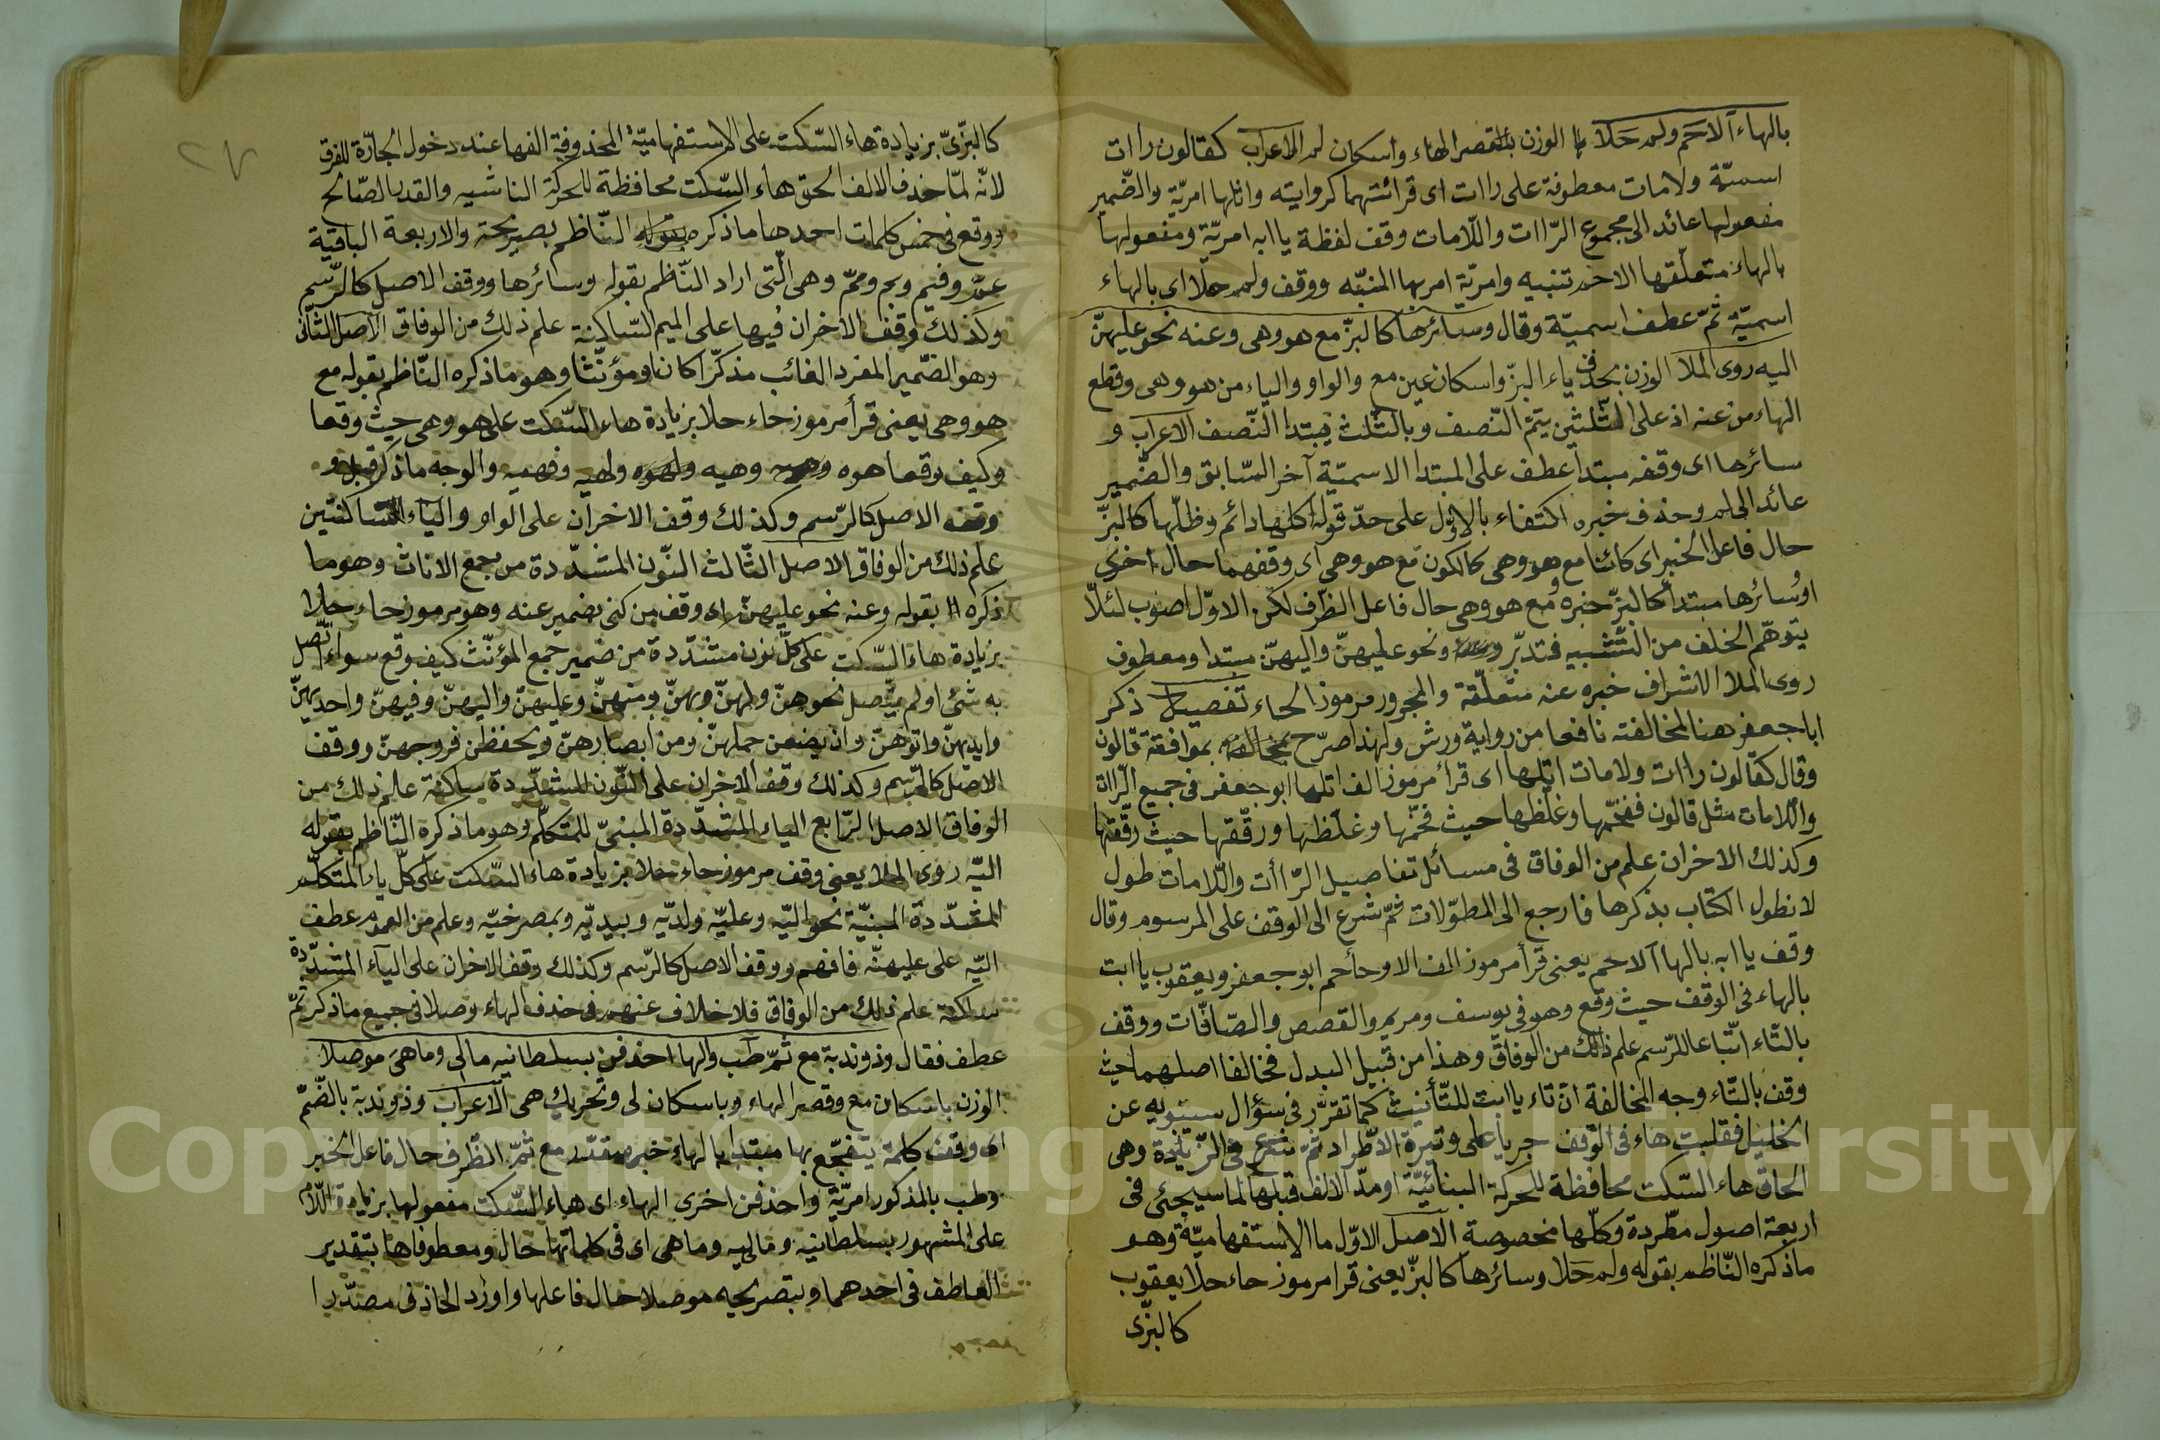 بالهاء آلا حم ولم حلا الوزن بقصر الهاء واسكان لم الاعراب كقالون راات
اسميّة ولامات معطوفة على راات اى قرائتهما كروايته واتلها امريّة والضّمير
مفعولها عائد الى مجموع الرّاات واللّامات وقف لفظة يا ابه امريّة ومفعولها
بالهاء متعلّقها الاحم تنبيه وامريّة امر بها المنبّه ووقف ولم حلا اى بالهاء
اسميّة ثمّ عطف اسميّة وقال وسائرها كالبزّ مع هو وهى وعنه نحو عليهنّ
اليه روى الملا الوزن بحذف ياء البزّ واسكان عين مع والواو والياء من هو وهى وقطع
الهاء من عنه اذ على الثّلثين يتمّ النّصف وبالثّلث يبتدا النّصف الاعراب و
سائرها اى وقفه مبتدأ عطف على المبتدا الاسميّة آخر السّابق والضّمير
عائد الى لم وحذف خبره اكتفاء بالاوّل على حدّ قوله اكلها دائم وظلّها كالبزّ
حال فاعل الخبر اى كائنا مع هو وهى كالكون مع هو وهى اى وقفهما حال اخرى
او سائرها مبتدا كالبزّ خبره ومع هو وهى حال فاعل الظّرف لكن الاوّل اصوب لئلّا
يتوهّم الخلف من التّشبيه فتدبّر ونحو عليهنّ واليهنّ مبتدا ومعطوف
روى الملا الاشراف خبره عنه متعلّقة والمجرور مرموز الحاء تفصيل ذكر
ابا جعفر هنا لمخالفته نافعا من رواية ورش ولهذا صرّح بموافقة قالون
وقال كقالون راات ولامات اتلها اى قرأ مرموز الف اتلها ابو جعفر فى جميع الرّاات
واللامات مثل قالون ففخّمها وغلّظها حيث فخّمها وغلّظها ورقّقها حيث رقّقها
وكذلك الاخران علم من الوفاق فى مسائل تفاصيل الرّاأت واللّامات طول
لا نطول الكتاب بذكرها فارجع الى المطوّلات ثمّ شرع الى الوقف على المرسوم وقال
وقف يا ابه بالها آلا حم يعنى قرأ مرموز الف الا وحاً حم ابو جعفر ويعقوب يا ابت
بالهاء فى الوقف حيث وقع وهو فى يوسف ومريم والقصص والصّافّات ووقف
بالتّاء اتّباعا للرّسم علم ذلك من الوفاق وهذا من قبيل البدل فخالفا اصلهما حيث
وقف بالتّاء وجه المخالفة انّ تاء يا ابت للتّأنيث كما تقرّر فى سؤال سيبويه عن
الخليل فقلبت هاء فى الوقف جريا على وتيرة الاطّراد ثمّ شرع فى الزّيادة وهى
الحاق هاء السّكت محافظة للحركة البنائيّة او مدّ الالف قبلها لما سيجئ فى
اربعة اصول مطّردة وكلّها مخصوصة الاصل الاوّل ما الاستفهاميّة وهو
ما ذكره النّاظم بقوله ولم حلا وسائرها كالبزّ يعنى قرا مرموز حاء حلا يعقوب
كالبزّى
كالبزّىّ بزيادة هاء السّكت على الاستفهاميّة المحذوفة الفها عند دخول الجارّة للفرق
لانّه لمّا حذف الالف الحق هاء السّكت محافظة للحركة الناشيه والقدر الصّالح
ووقع فى خمس كلمات احدها ما ذكره بقوله النّاظم بصريحته والاربعة الباقية
عمّ وفيم وبم وممّ وهى الّتى اراد النّاظم بقوله وسائرها ووقف الاصل كالرّسم
وكذلك وقف الاخران فيها على الميم السّاكنة علم ذلك من الوفاق الاصل الثّانى
وهو الضّمير المفرد الغائب مذكّرا كان او مؤنّثا وهو ما ذكره النّاظم بقوله مع
هو وهى يعنى قرأ مرموز حاء حلا بزيادة هاء السّكت على هو وهى حيث وقعا
وكيف وقعا هوه وهيه ولهوه ولهيه وفهيه والوجه ما ذكر قبل و
وقفه الاصل كالرّسم وكذلك وقف الاخران على الواو والياء السّاكنتين
علم ذلك من الوفاق الاصل الثّالث النّون المشدّدة من جمع الاناث وهو ما
ذكره بقوله وعنه نحو عليهنّ اى وقف من كنى بضمير عنه وهو مرموز حاء حلا
بزيادة هاء السّكت على كلّ نون مشدّدة من ضمير جمع المؤنّث كيف وقع سواء اتّصل
به شئ او لم يتّصل نحو هنّ ولهنّ وبهنّ ومنهنّ وعليهنّ واليهنّ وفيهنّ واحديهنّ
وايديهنّ واتوهنّ وان يضعن حملهنّ ومن ابصارهنّ ويحفظن فروجهنّ ووقف
الاصل كالرّسم وكذلك وقف الاخران على النّون المشدّدة ساكنة علم ذلك من
الوفاق الاصل الرّابع الياء المشدّدة المبنىّ للمتكلّم وهو ما ذكره النّاظم بقوله
اليّه روى الملا يعنى وقف مرموز حاء حلا بزيادة هاء السّكت على كلّ ياء المتكلّم
المشدّدة المبنيّة نحو اليّه وعليّه ولديّه وبيديّه وبمصرخيّه وعلم من العموم عطف
اليّه على عليهنّه فافهم ووقف الاصل كالرّسم وكذلك وقف الاخران على الياء المشدّدة
ساكنة علم ذلك من الوفاق فلا خلاف عنهم فى حذف الهاء وصلا فى جميع ما ذكر ثمّ
عطف فقال وذو ندبة مع ثمّ طب والها احذفن بسلطانيه مالى وماهى موصلا
الوزن باسكان مع وقصر الهاء وباسكان لى وتحريك هى الاعراب وذو ندبة بالضّمّ
اى وقف كلمة يتفجّع بها مبتدا بالهاء خبره مقدّر مع ثمّ الظّرف حال فاعل الخبر
وطب بالمذكور امريّة واحذفن اخرى الهاء اى هاء السّكت مفعولها بزيادة اللّام
على المشهور بسلطانيه وماليه وماهى اى فى كلماتها حال ومعطوفاها بتقدير
العاطف فى احدهما وبتصريحه موصلا حال فاعلها واورد الحاذف مصدّرا
Copyright © King University